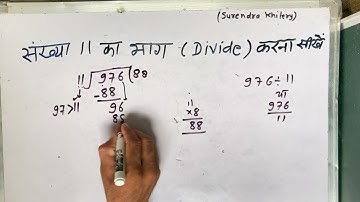 (Surendra Khilery)
संख्या 11 का भाग (Divide) करना सीखें
11 ) 976 ( 88
-88
97>11
96
88
11
×8
88
976÷11
या
976
11